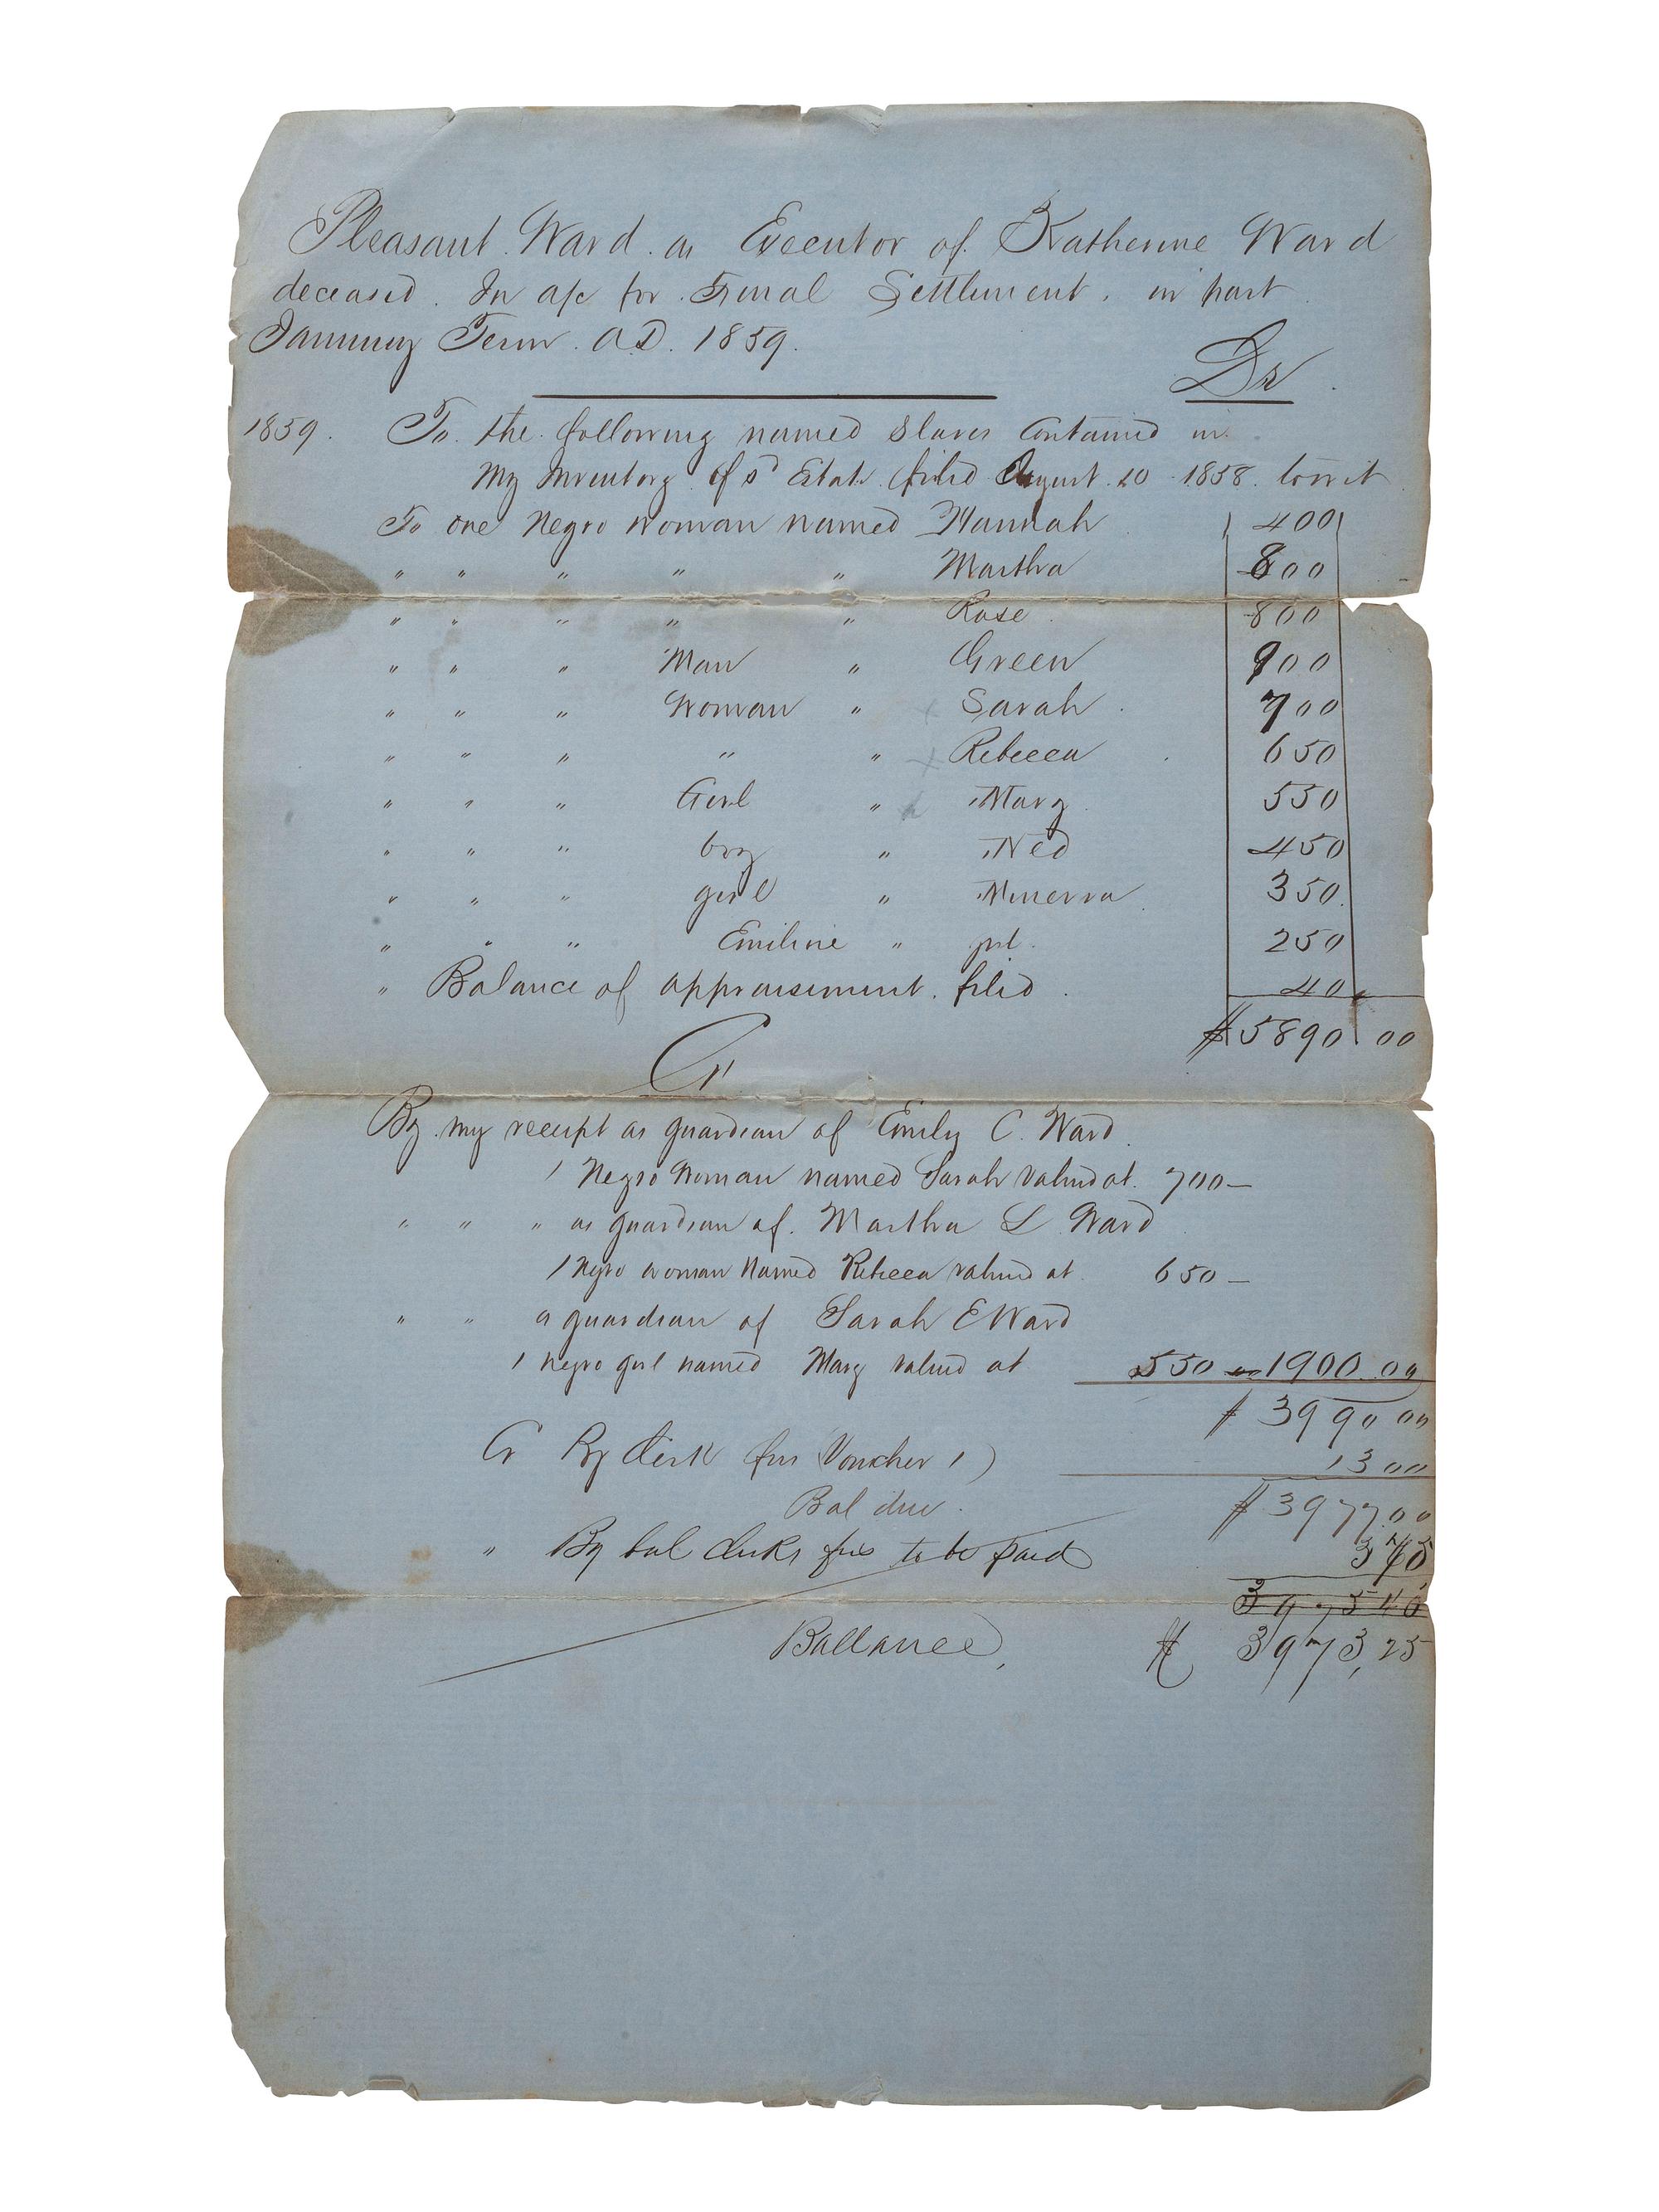 Pleasant Ward as Executor of Katherine Ward
deceased. In a/c for Final Settlement, in part
January Term A.D. 1859.
Dr
1859. To the following named Slaves Contained in
My Inventory of sd Estate filed August 20 1858 towit
To one Negro woman named Hannah 400
" " " " " Martha 800
" " " " " Rose 800
" " " Man " Green 900
" " " Woman " Sarah 700
" " " " " Rebecca 650
" " " Girl " Mary 550
" " " boy " Ned 450
" " " girl " Minerva 350
" " " Emiline " girl 250
" Balance of appraisement filed 40
$5890 00
Cr
By my receipt as guardian of Emily C. Ward
1 Negro Woman named Sarah valued at 700 —
" " " as guardian of Martha L Ward
1 Negro woman Named Rebecca valued at 650 —
" " as guardian of Sarah E Ward
1 negro girl named Mary valued at 550 1900.00
$ 3990 00
Cr By Clerk fees Voucher 1) 13 00
Bal due $ 3977.00
" By bal clerks fees to be paid 3 75
Ballance, $ 3973,25